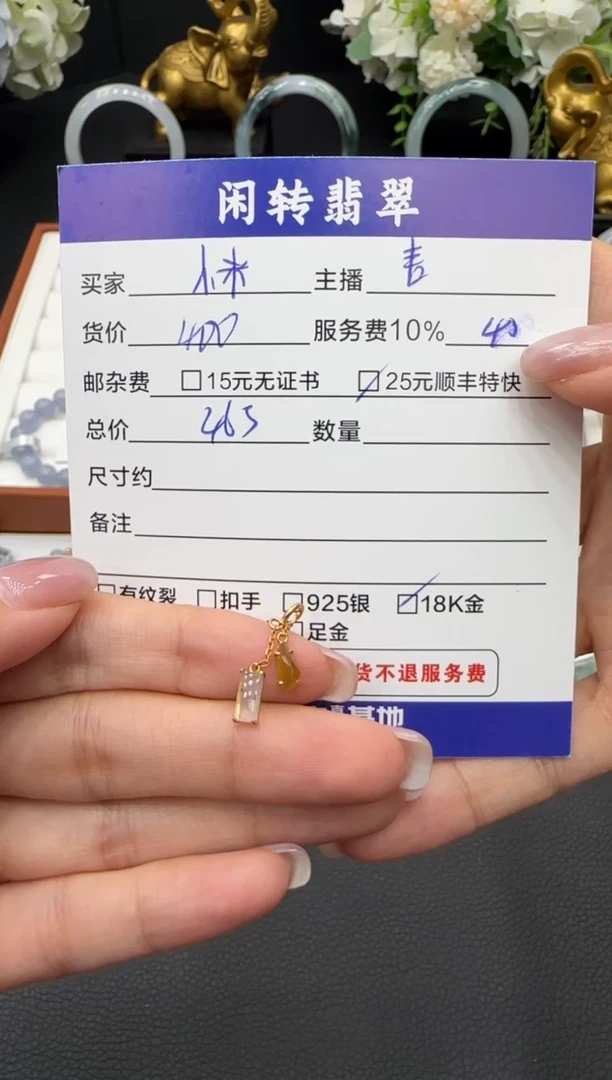 闲转翡翠
买家 小米 主播
货价 400 服务费10% 40
邮杂费 15元无证书 25元顺丰特快
总价 465 数量
尺寸约
备注
有纹裂 扣手 925银 18K金
足金
货不退服务费
基地